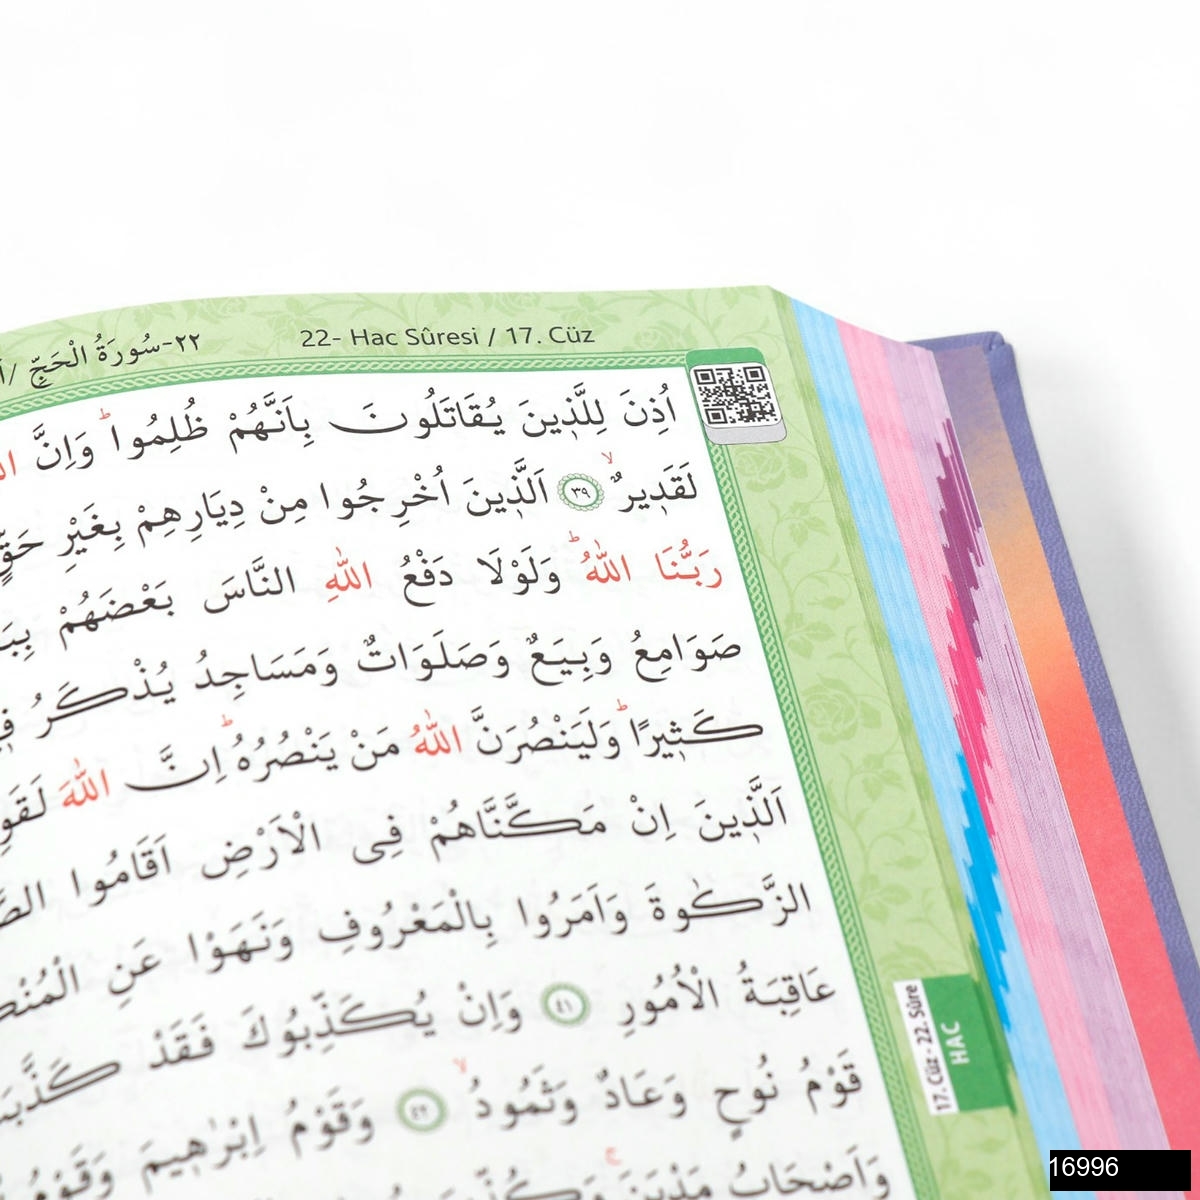 ٢٢-سُورَةُ الْحَجِّ /
22- Hac Sûresi / 17. Cüz
اُذِنَ لِلَّذٖينَ يُقَاتَلُونَ بِاَنَّهُمْ ظُلِمُواؕ وَاِنَّ
لَقَدٖيرٌۙ ﴿٣٩﴾ اَلَّذٖينَ اُخْرِجُوا مِنْ دِيَارِهِمْ بِغَيْرِ حَقٍّ
رَبُّنَا اللّٰهُؕ وَلَوْلَا دَفْعُ اللّٰهِ النَّاسَ بَعْضَهُمْ
صَوَامِعُ وَبِيَعٌ وَصَلَوَاتٌ وَمَسَاجِدُ يُذْكَرُ
كَثٖيرًاؕ وَلَيَنْصُرَنَّ اللّٰهُ مَنْ يَنْصُرُهُؕ اِنَّ اللّٰهَ
اَلَّذٖينَ اِنْ مَكَّنَّاهُمْ فِى الْاَرْضِ اَقَامُوا
الزَّكٰوةَ وَاَمَرُوا بِالْمَعْرُوفِ وَنَهَوْا عَنِ
عَاقِبَةُ الْاُمُورِ ﴿٤١﴾ وَاِنْ يُكَذِّبُوكَ فَقَدْ
قَوْمُ نُوحٍ وَعَادٌ وَثَمُودُۙ ﴿٤٢﴾ وَقَوْمُ اِبْرٰهٖيمَ وَقَوْمُ
وَاَصْحَابُ مَدْيَنَۚ
17. Cüz - 22. Sûre
HAC
16996